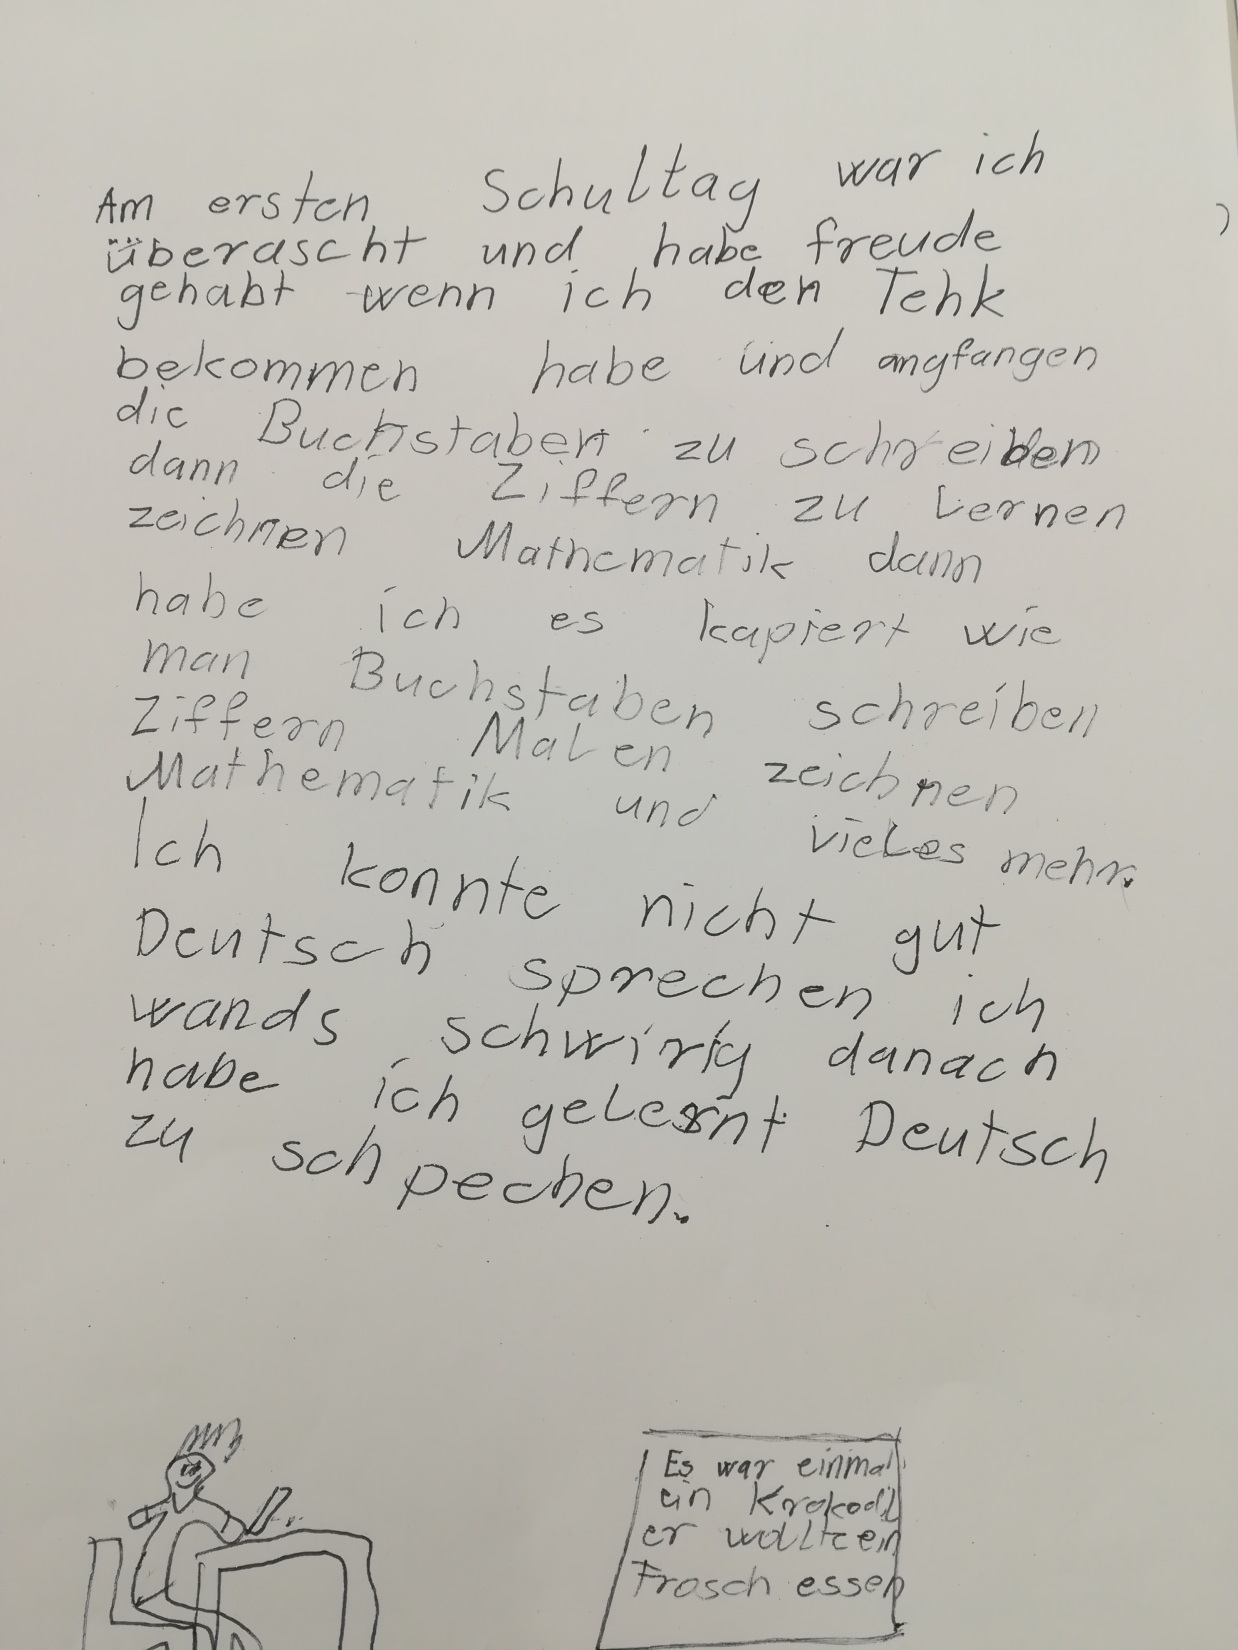 Am ersten Schultag war ich
überascht und habe freude
gehabt wenn ich den Tehk
bekommen habe und angfangen
die Buchstaben zu schreiben
dann die Ziffern zu Lernen
zeichnen Mathematik dann
habe ich es kapiert wie
man Buchstaben schreiben
Ziffern Malen zeichnen
Mathematik und vieles mehr.
Ich konnte nicht gut
Deutsch sprechen ich
wands schwirig danach
habe ich gelernt Deutsch
zu schpechen.
Es war einmal
ein Krokodil
er wollte ein
Frosch essen